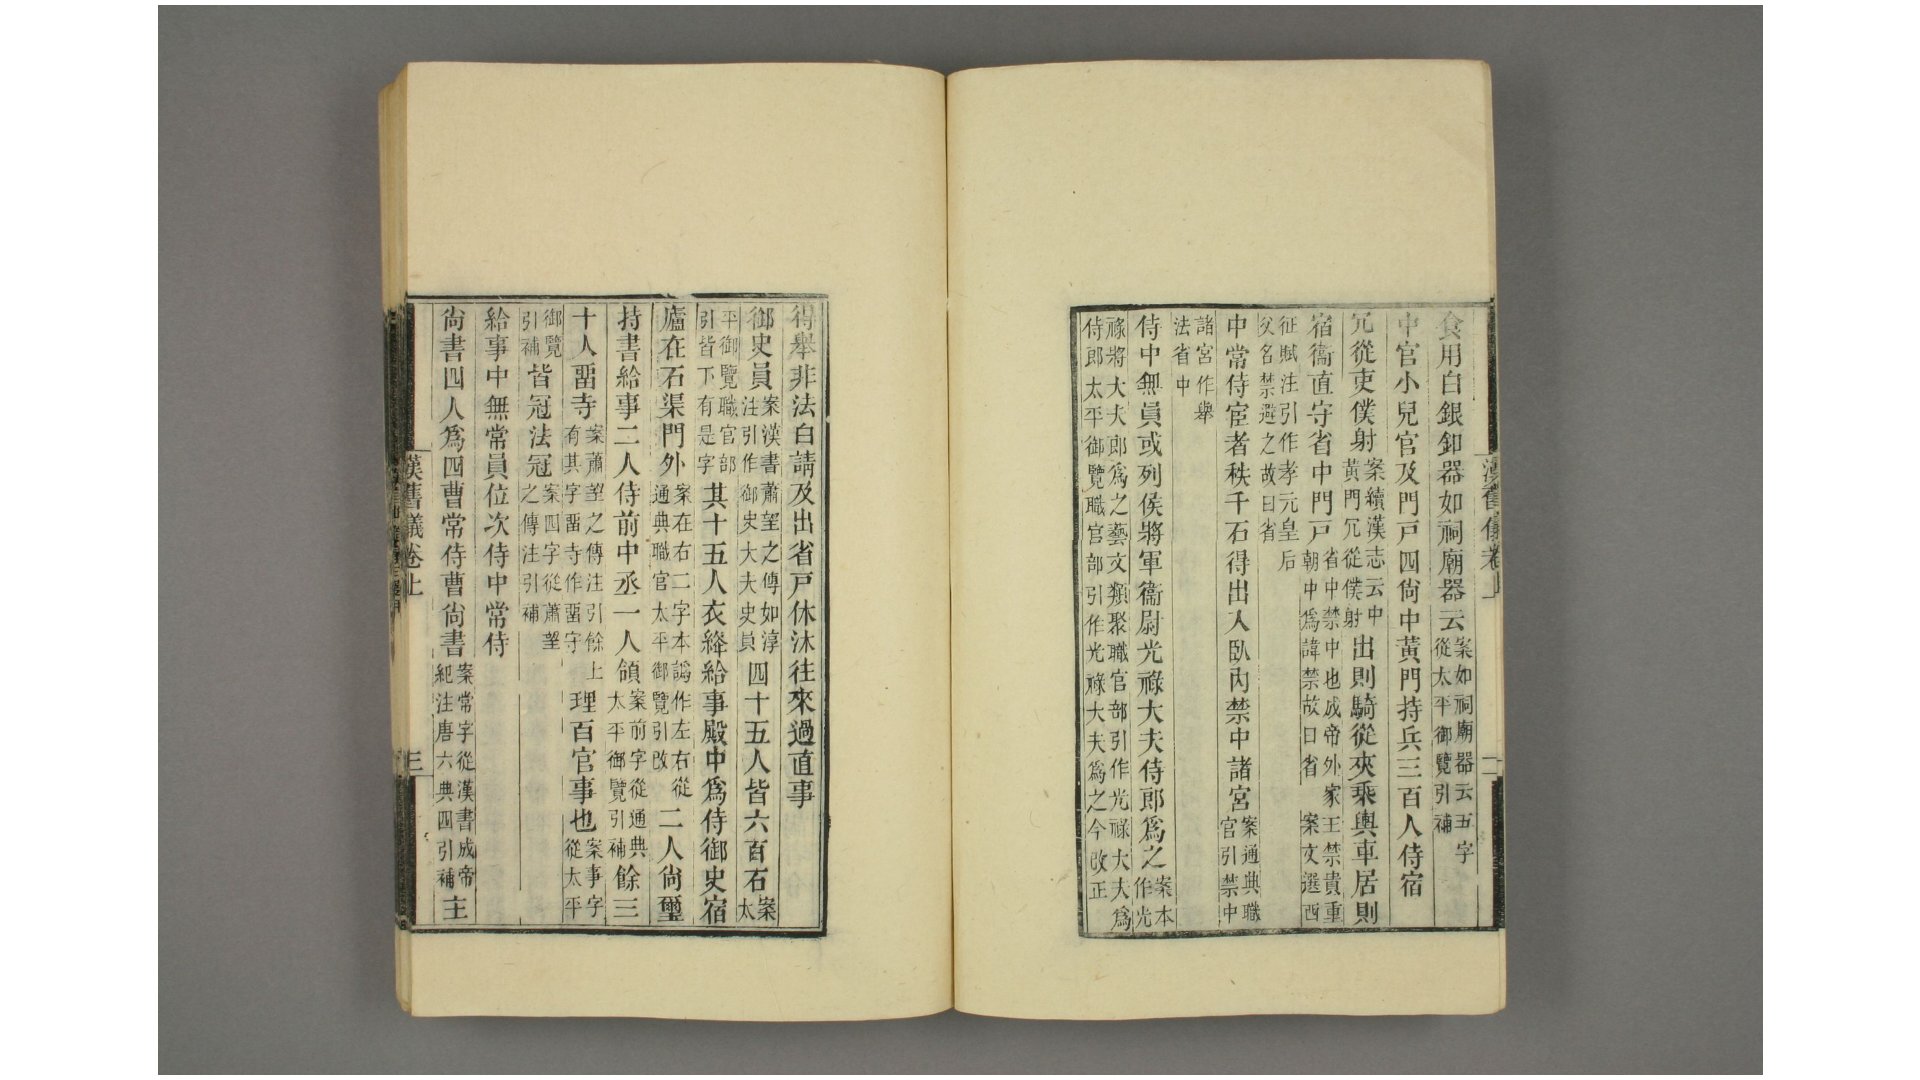 食用白銀釦器如祠廟器云案如祠廟器云五字從太平御覽引補
中官小兒官及門戸四尙中黃門持兵三百人侍宿
冗從吏僕射案續漢志云中黃門冗從僕射出則騎從夾乘輿車居則
宿衞直守省中門戸省中禁中也成帝外家王禁貴重朝中爲諱禁故曰省案文選西
征賦注引作孝元皇后父名禁避之故曰省
中常侍宦者秩千石得出入臥內禁中諸宮案通典職官引禁中
諸宮作舉法省中
侍中無員或列侯將軍衞尉光祿大夫侍郎爲之案本作光
祿將大夫郎爲之藝文類聚職官部引作光祿大夫爲侍郎太平御覽職官部引作光祿大夫爲之今改正
漢舊儀卷上
二
得舉非法白請及出省戸休沐往來過直事
御史員案漢書蕭望之傳如淳注引作御史大夫史員四十五人皆六百石案太
平御覽職官部引皆下有是字其十五人衣絳給事殿中爲侍御史宿
廬在石渠門外案在右二字本譌作左右從通典職官太平御覽引改二人尙璽
持書給事二人侍前中丞一人領案前字從通典太平御覽引補餘三
十人畱寺案蕭望之傳注引餘上有其字畱寺作畱守理百官事也案事字從太平
御覽引補皆冠法冠案四字從蕭望之傳注引補
給事中無常員位次侍中常侍
尙書四人爲四曹常侍曹尙書案常字從漢書成帝紀注唐六典四引補主
漢舊儀卷上
三